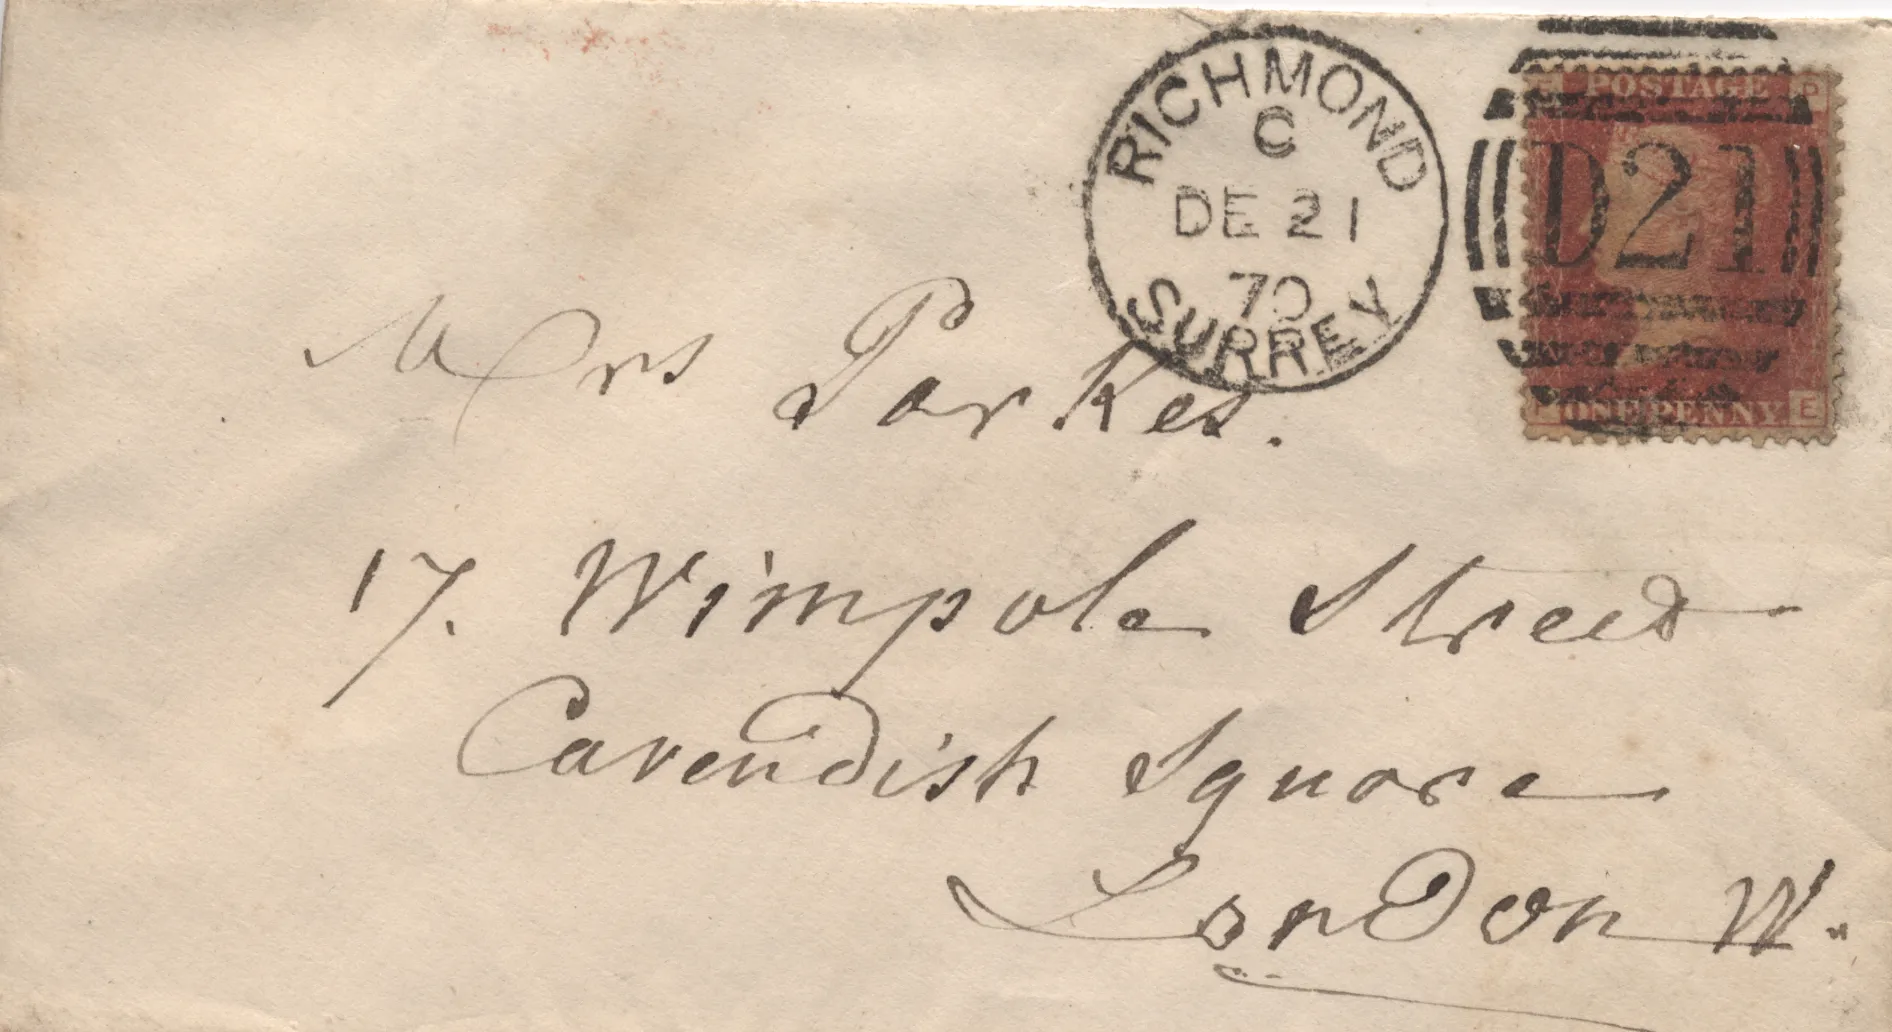 RICHMOND
C
DE 21
70
SURREY
POSTAGE
D21
ONE PENNY
E
Mrs Parkes.
17. Wimpole Street
Cavendish Square
London W.